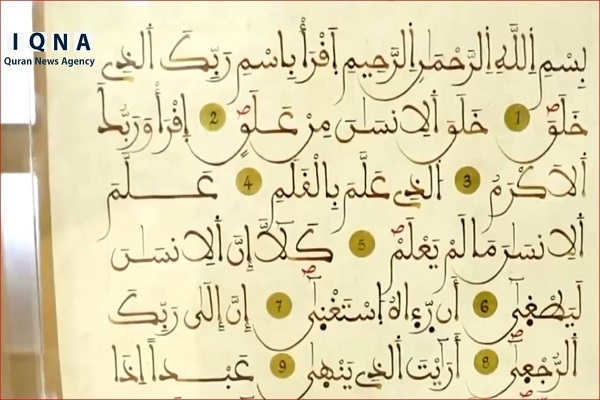 IQNA
Quran News Agency
بِسْمِ اِ۬للَّهِ اِ۬لرَّحْمَٰنِ اِ۬لرَّحِيمِ اِ۪قْرَأْ بِاسْمِ رَبِّكَ اَ۬لذِے
خَلَقَۖ 1 خَلَقَ اَ۬لِانسَٰنَ مِنْ عَلَقٍۖ 2 اِ۪قْرَأْ وَرَبُّكَ
اَ۬لَاكْرَمُ 3 اُ۬لذِے عَلَّمَ بِالْقَلَمِ 4 عَلَّمَ
اَ۬لِانسَٰنَ مَا لَمْ يَعْلَمْۖ 5 كَلَّآ إِنَّ اَ۬لِانسَٰنَ
لَيَطْغ۪ىٰٓ 6 أَن رَّء۪اهُ اُ۪سْتَغْن۪ىٰٓۖ 7 إِنَّ إِلَىٰ رَبِّكَ
اَ۬لرُّجْع۪ىٰٓۖ 8 أَرَٰٓيْتَ اَ۬لذِے يَنْه۪ىٰ 9 عَبْداً اِذَا